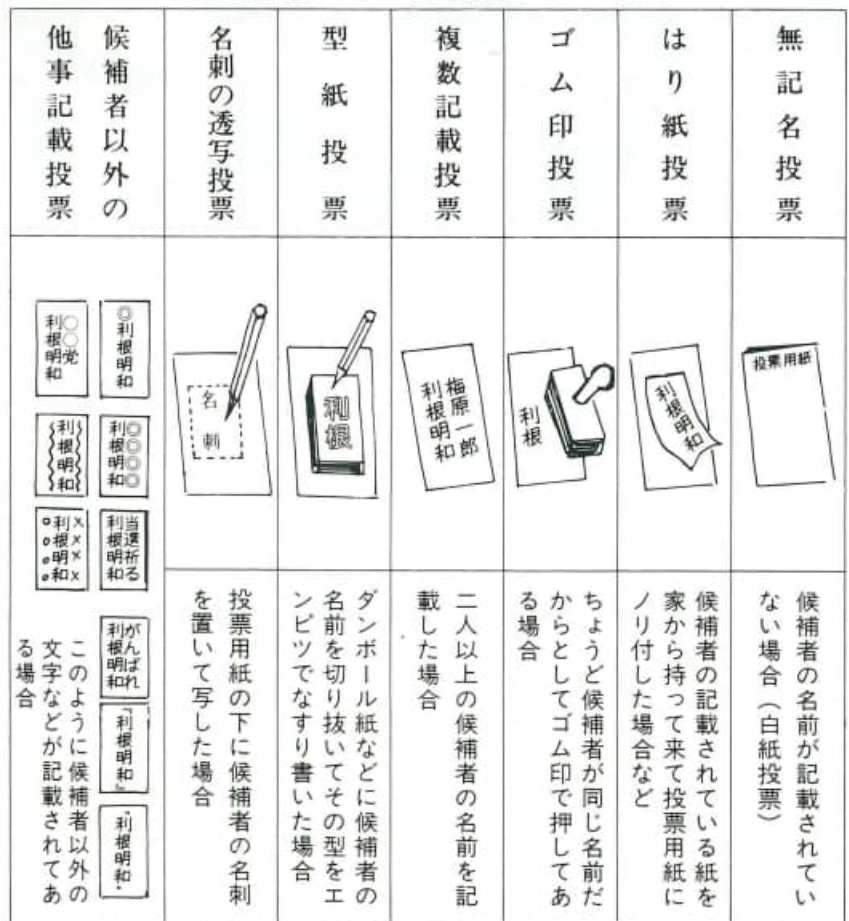 無記名投票
投票用紙
候補者の名前が記載されてい
ない場合（白紙投票）
はり紙投票
利根明和
候補者の記載されている紙を
家から持って来て投票用紙に
ノリ付した場合など
ゴム印投票
利根
ちょうど候補者が同じ名前だ
からとしてゴム印で押してあ
る場合
複数記載投票
梅原一郎
利根明和
二人以上の候補者の名前を記
載した場合
型紙投票
利根
ダンボール紙などに候補者の
名前を切り抜いてその型をエ
ンピツでなすり書いた場合
名刺の透写投票
名刺
投票用紙の下に候補者の名刺
を置いて写した場合
候補者以外の
他事記載投票
◎利根明和
○○党
利根明和
◎◎◎◎
利根明和
利根明和
当選祈る
利根明和
××××
利根明和
○○○○
がんばれ
利根明和
「利根明和」
利根明和.
このように候補者以外の
文字などが記載されてあ
る場合